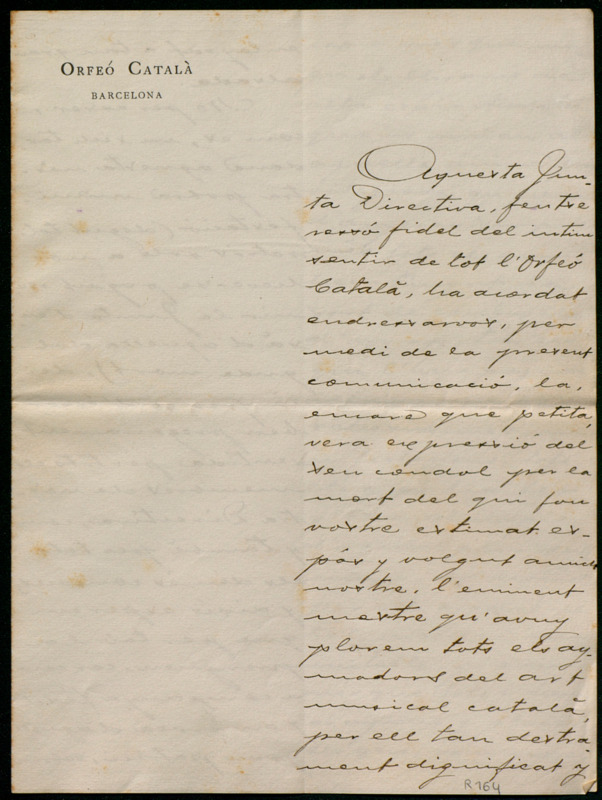 ORFEÓ CATALÀ
BARCELONA
Aquesta Jun-
ta Directiva, fentse
ressó fidel del intim
sentir de tot l'Orfeó
Català, ha acordat
endressarvos, per
medi de la present
comunicació, la,
encare que petita,
vera expressió del
seu condol per la
mort del qui fou
vostre estimat es-
pós y volgut amich
nostre, l'eminent
mestre qu'avuy
plorem tots els ay-
madors del art
musical català,
per ell tan destra-
ment dignificat y
R 164